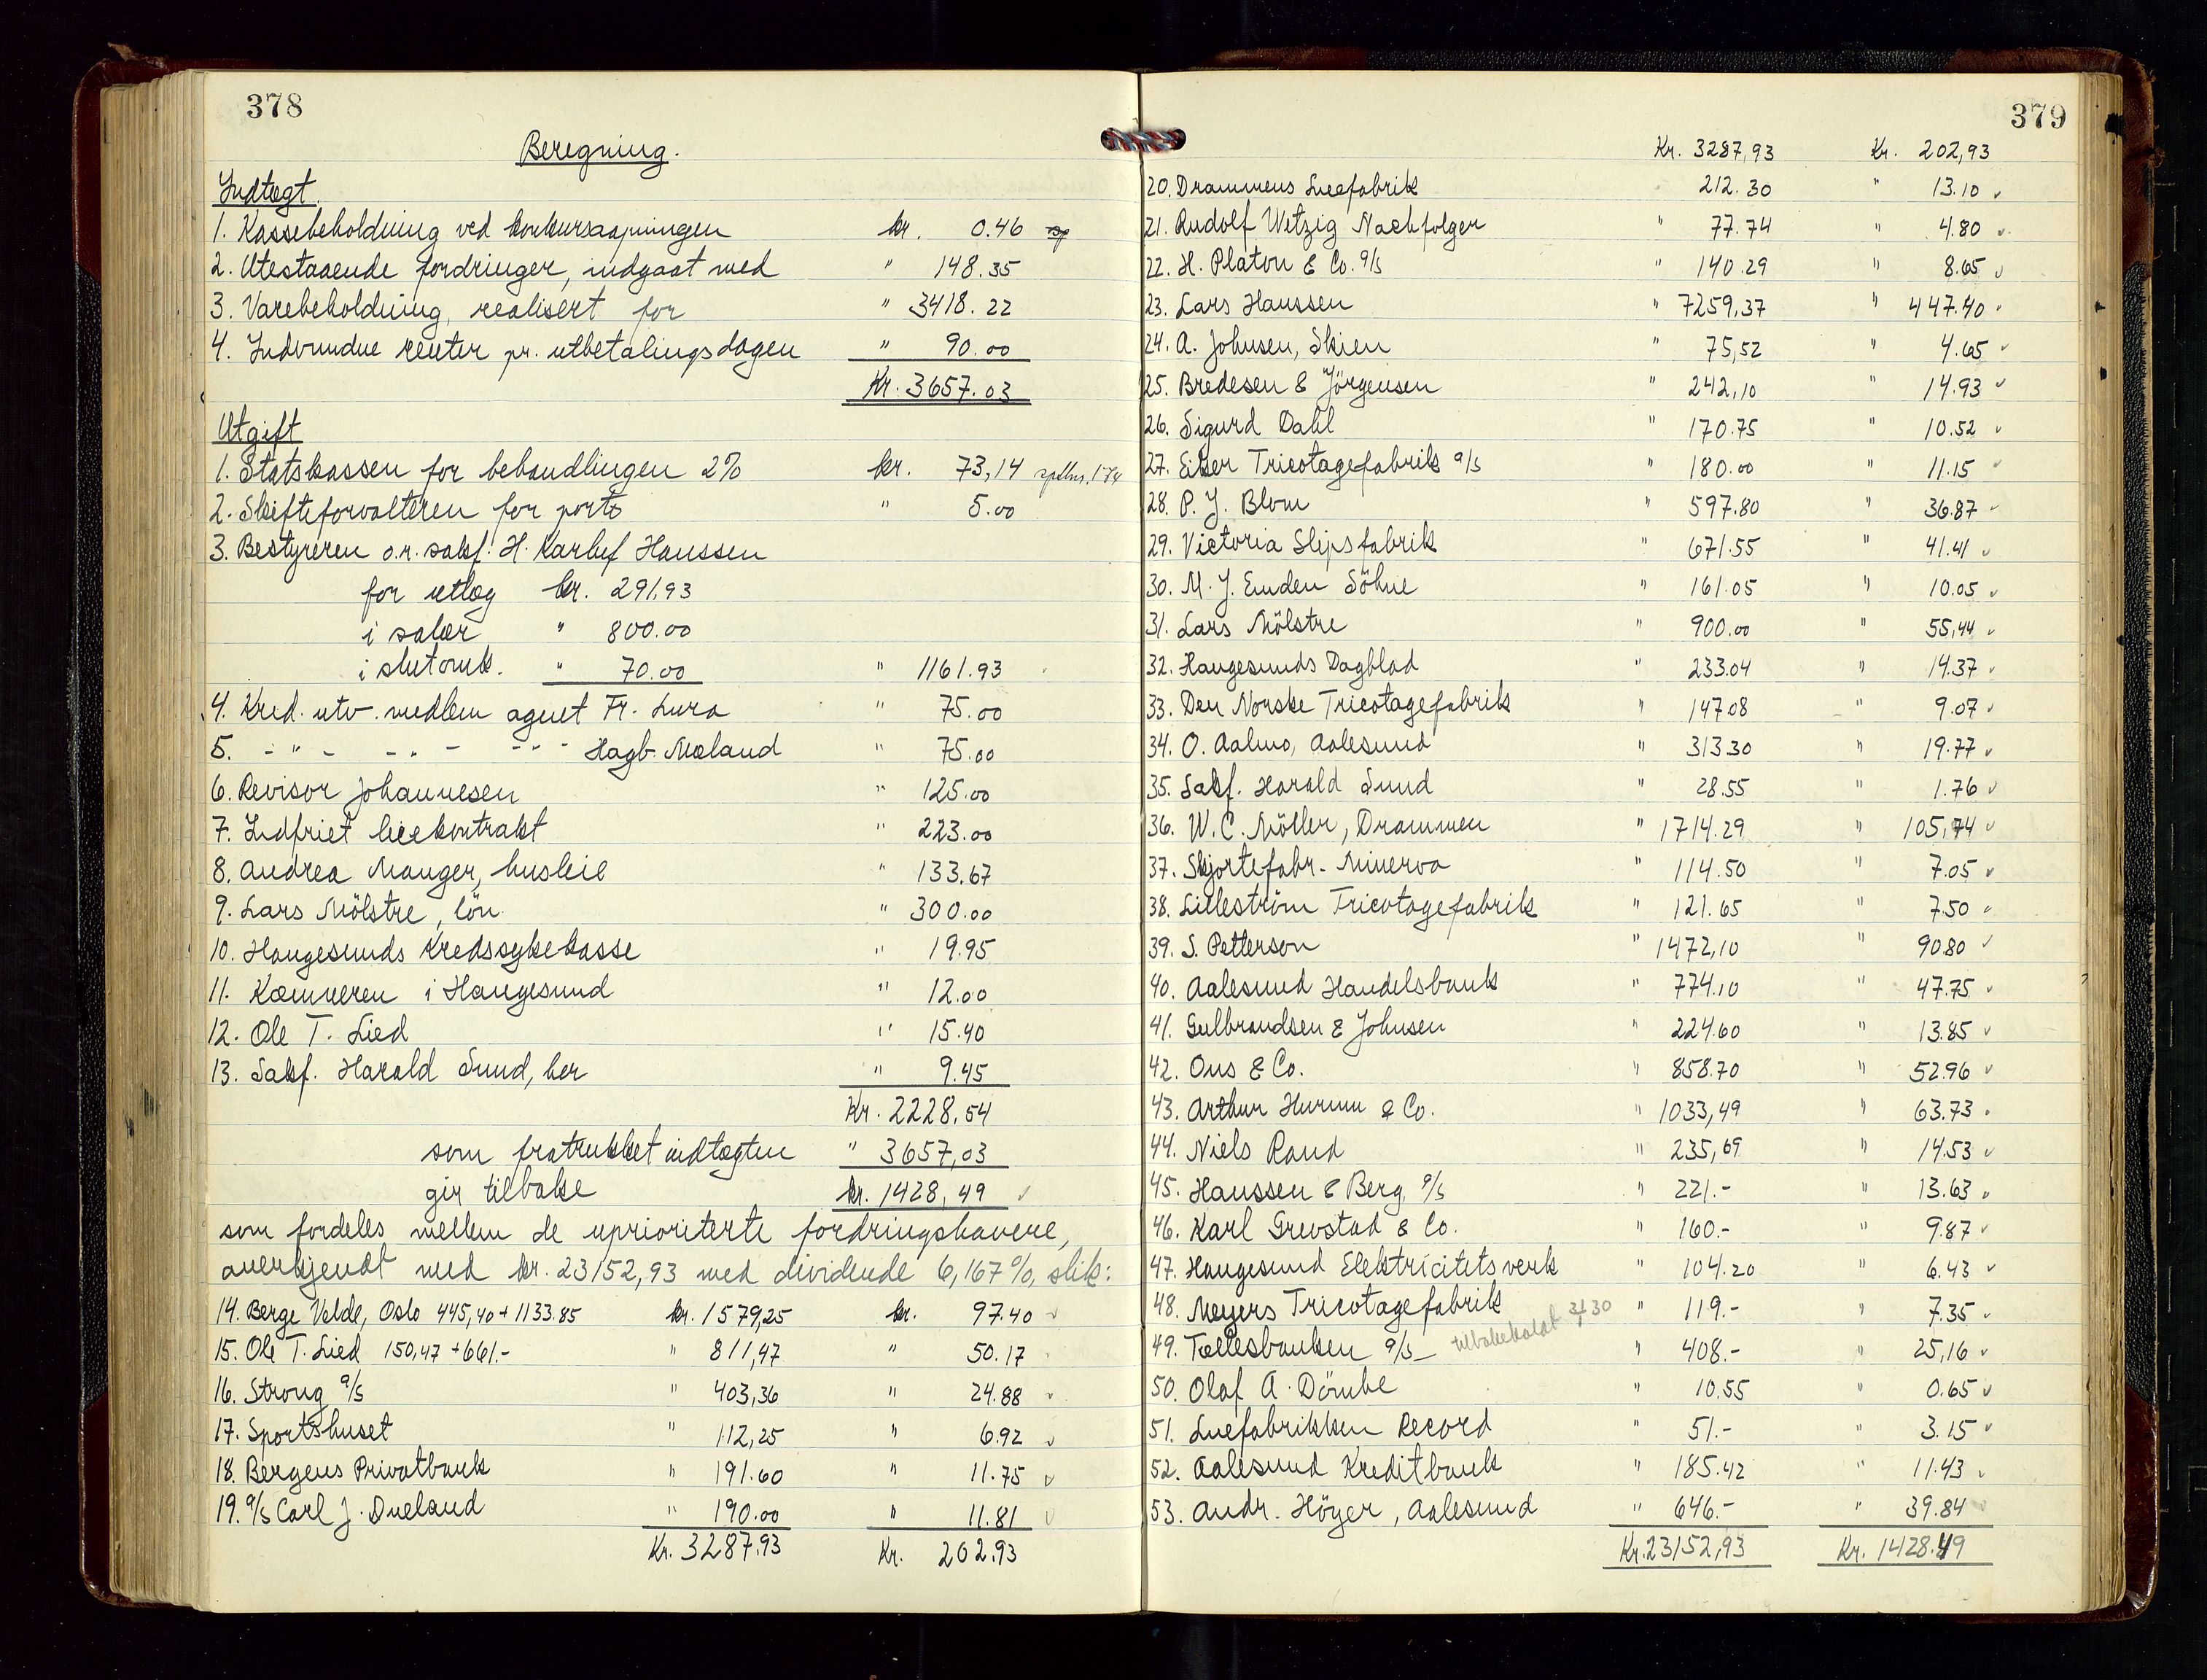 378
Beregning.
Indtægt.
1. Kassebeholdning ved konkursaapningen kr. 0.46
2. Utestaaende fordringer, indgaat med " 148.35
3. Varebeholdning, realisert for " 3418.22
4. Indvundne renter pr. utbetalingsdagen " 90.00
Kr. 3657.03
Utgift
1. Statskassen for behandlingen 2% kr. 73,14
2. Skifteforvalteren for porto " 5.00
3. Bestyreren o.r. sakf. H. Karluf Hanssen
for utlæg kr. 291.93
i salær " 800.00
i slutomk. " 70.00 " 1161.93
4. Kred. utv. medlem agent Fr. Lura " 75.00
5. - " - - " - - " - Hagb. Mæland " 75.00
6. Revisor Johannesen " 125.00
7. Indfriet leiekontrakt " 223.00
8. Andrea Manger, husleie " 133.67
9. Lars Mölstre, lön " 300.00
10. Haugesunds Kredssykekasse " 19.95
11. Kæmneren i Haugesund " 12.00
12. Ole T. Lied " 15.40
13. Sakf. Harald Sund, her " 9.45
Kr. 2228.54
som fratrukket indtægten " 3657,03
gir tilbake kr. 1428,49
som fordeles mellem de uprioriterte fordringshavere,
anerkjendt med kr. 23152,93 med dividende 6,167%, slik:
14. Berge Velde, Oslo 445,40 + 1133.85 kr. 1579,25 kr. 97.40
15. Ole T. Lied 150,47 + 661.- " 811,47 " 50.17
16. Strong a/s " 403,36 " 24.88
17. Sportshuset " 112,25 " 6.92
18. Bergens Privatbank " 191.60 " 11.75
19. a/s Carl J. Dueland " 190.00 " 11.81
Kr. 3287.93 Kr. 202.93
379
Kr. 3287,93 Kr. 202,93
20. Drammens Luefabrik 212.30 " 13.10
21. Rudolf Wetzig Nachfolger " 77.74 " 4.80
22. H. Platou & Co. a/s " 140.29 " 8.65
23. Lars Hanssen " 7259,37 " 447.40
24. A. Johnsen, Skien " 75,52 " 4.65
25. Bredesen & Jörgensen " 242,10 " 14.93
26. Sigurd Dahl " 170.75 " 10.52
27. Eiker Tricotagefabrik a/s " 180.00 " 11.15
28. P. J. Blom " 597.80 " 36.87
29. Victoria Slipsfabrik " 671.55 " 41.41
30. M. J. Emden Söhne " 161.05 " 10.05
31. Lars Mölstre " 900.00 " 55,44
32. Haugesunds Dagblad " 233.04 " 14.37
33. Den Norske Tricotagefabrik " 147.08 " 9.07
34. O. Aalmo, Aalesund " 313.30 " 19.77
35. Sakf. Harald Sund " 28.55 " 1.76
36. W. C. Möller, Drammen " 1714.29 " 105,74
37. Skjortefabr. Minerva " 114.50 " 7.05
38. Lilleström Tricotagefabrik " 121.65 " 7.50
39. S. Petterson " 1472,10 " 90.80
40. Aalesund Handelsbank " 774.10 " 47.75
41. Gulbrandsen & Johnsen " 224.60 " 13.85
42. Ous & Co. " 858.70 " 52.96
43. Arthur Hurum & Co. " 1033,49 " 63.73
44. Niels Rand " 235,69 " 14.53
45. Hanssen & Berg a/s " 221.- " 13.63
46. Karl Grevstad & Co. " 160.- " 9.87
47. Haugesund Elektricitetsverk " 104.20 " 6.43
48. Meyers Tricotagefabrik " 119.- " 7.35
49. Fællesbanken a/s tilbakekaldt " 408.- " 25,16
50. Olaf A. Dömbe " 10.55 " 0.65
51. Luefabrikken Record " 51.- " 3.15
52. Aalesund Kreditbank " 185.42 " 11.43
53. Andr. Höyer, Aalesund " 646.- " 39.84
Kr. 23152,93 Kr. 1428.49